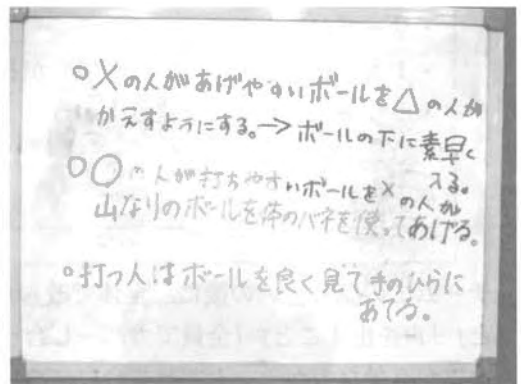 ○Xの人があげやすいボールを△の人が
かえすようにする。→ボールの下に素早く
入る。
○○の人が打ちやすいボールをXの人が
山なりのボールを体のバネを使ってあげる。
○打つ人はボールを良く見て手のひらに
あてる。